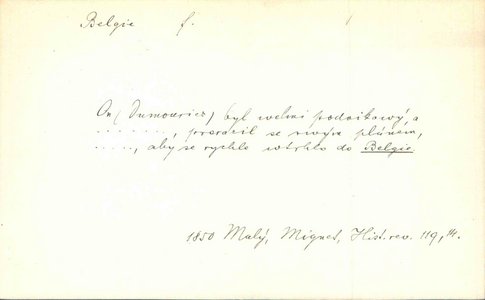 Belgie f.
On (Dumouriez) byl welmi podnikowý, a
. . . . . . ., prorazil se swým plánem,
. . . . ., aby se rychle wtrhlo do Belgie
1850 Malý, Mignet, Hist. rev. 119, 14.